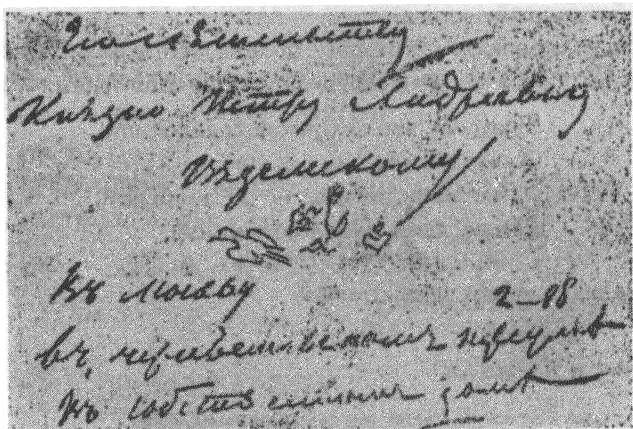 Его Сіятельству
Князю Петру Андреевичу
Вяземскому
Въ Москву
въ переулкѣ
въ собственномъ домѣ